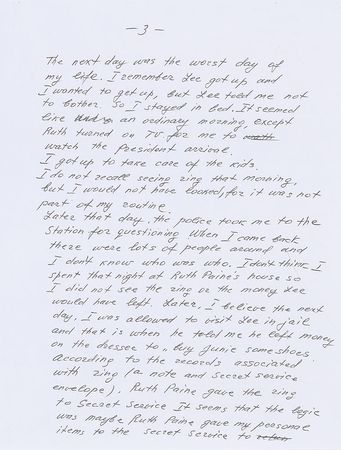 — 3 —
The next day was the worst day of
my life. I remember Lee got up and
I wanted to get up, but Lee told me not
to bother. So I stayed in bed. It seemed
like an ordinary morning, except
Ruth turned on TV for me to
watch the President arrival.
I got up to take care of the kids.
I do not recall seeing ring that morning,
but I would not have looked, for it was not
part of my routine.
Later that day, the police took me to the
Station for questioning. When I came back
there were lots of people around and
I don't know who was who. I don't think I
spent that night at Ruth Paine's house so
I did not see the ring or the money Lee
would have left. Later, I believe the next
day, I was allowed to visit Lee in jail
and that is when he told me he left money
on the dresser to "buy Junie some shoes."
According to the records associated
with ring (a note and secret service
envelope), Ruth Paine gave the ring
to Secret Service It seems that the logic
was maybe Ruth Paine gave my personal
items to the secret service to